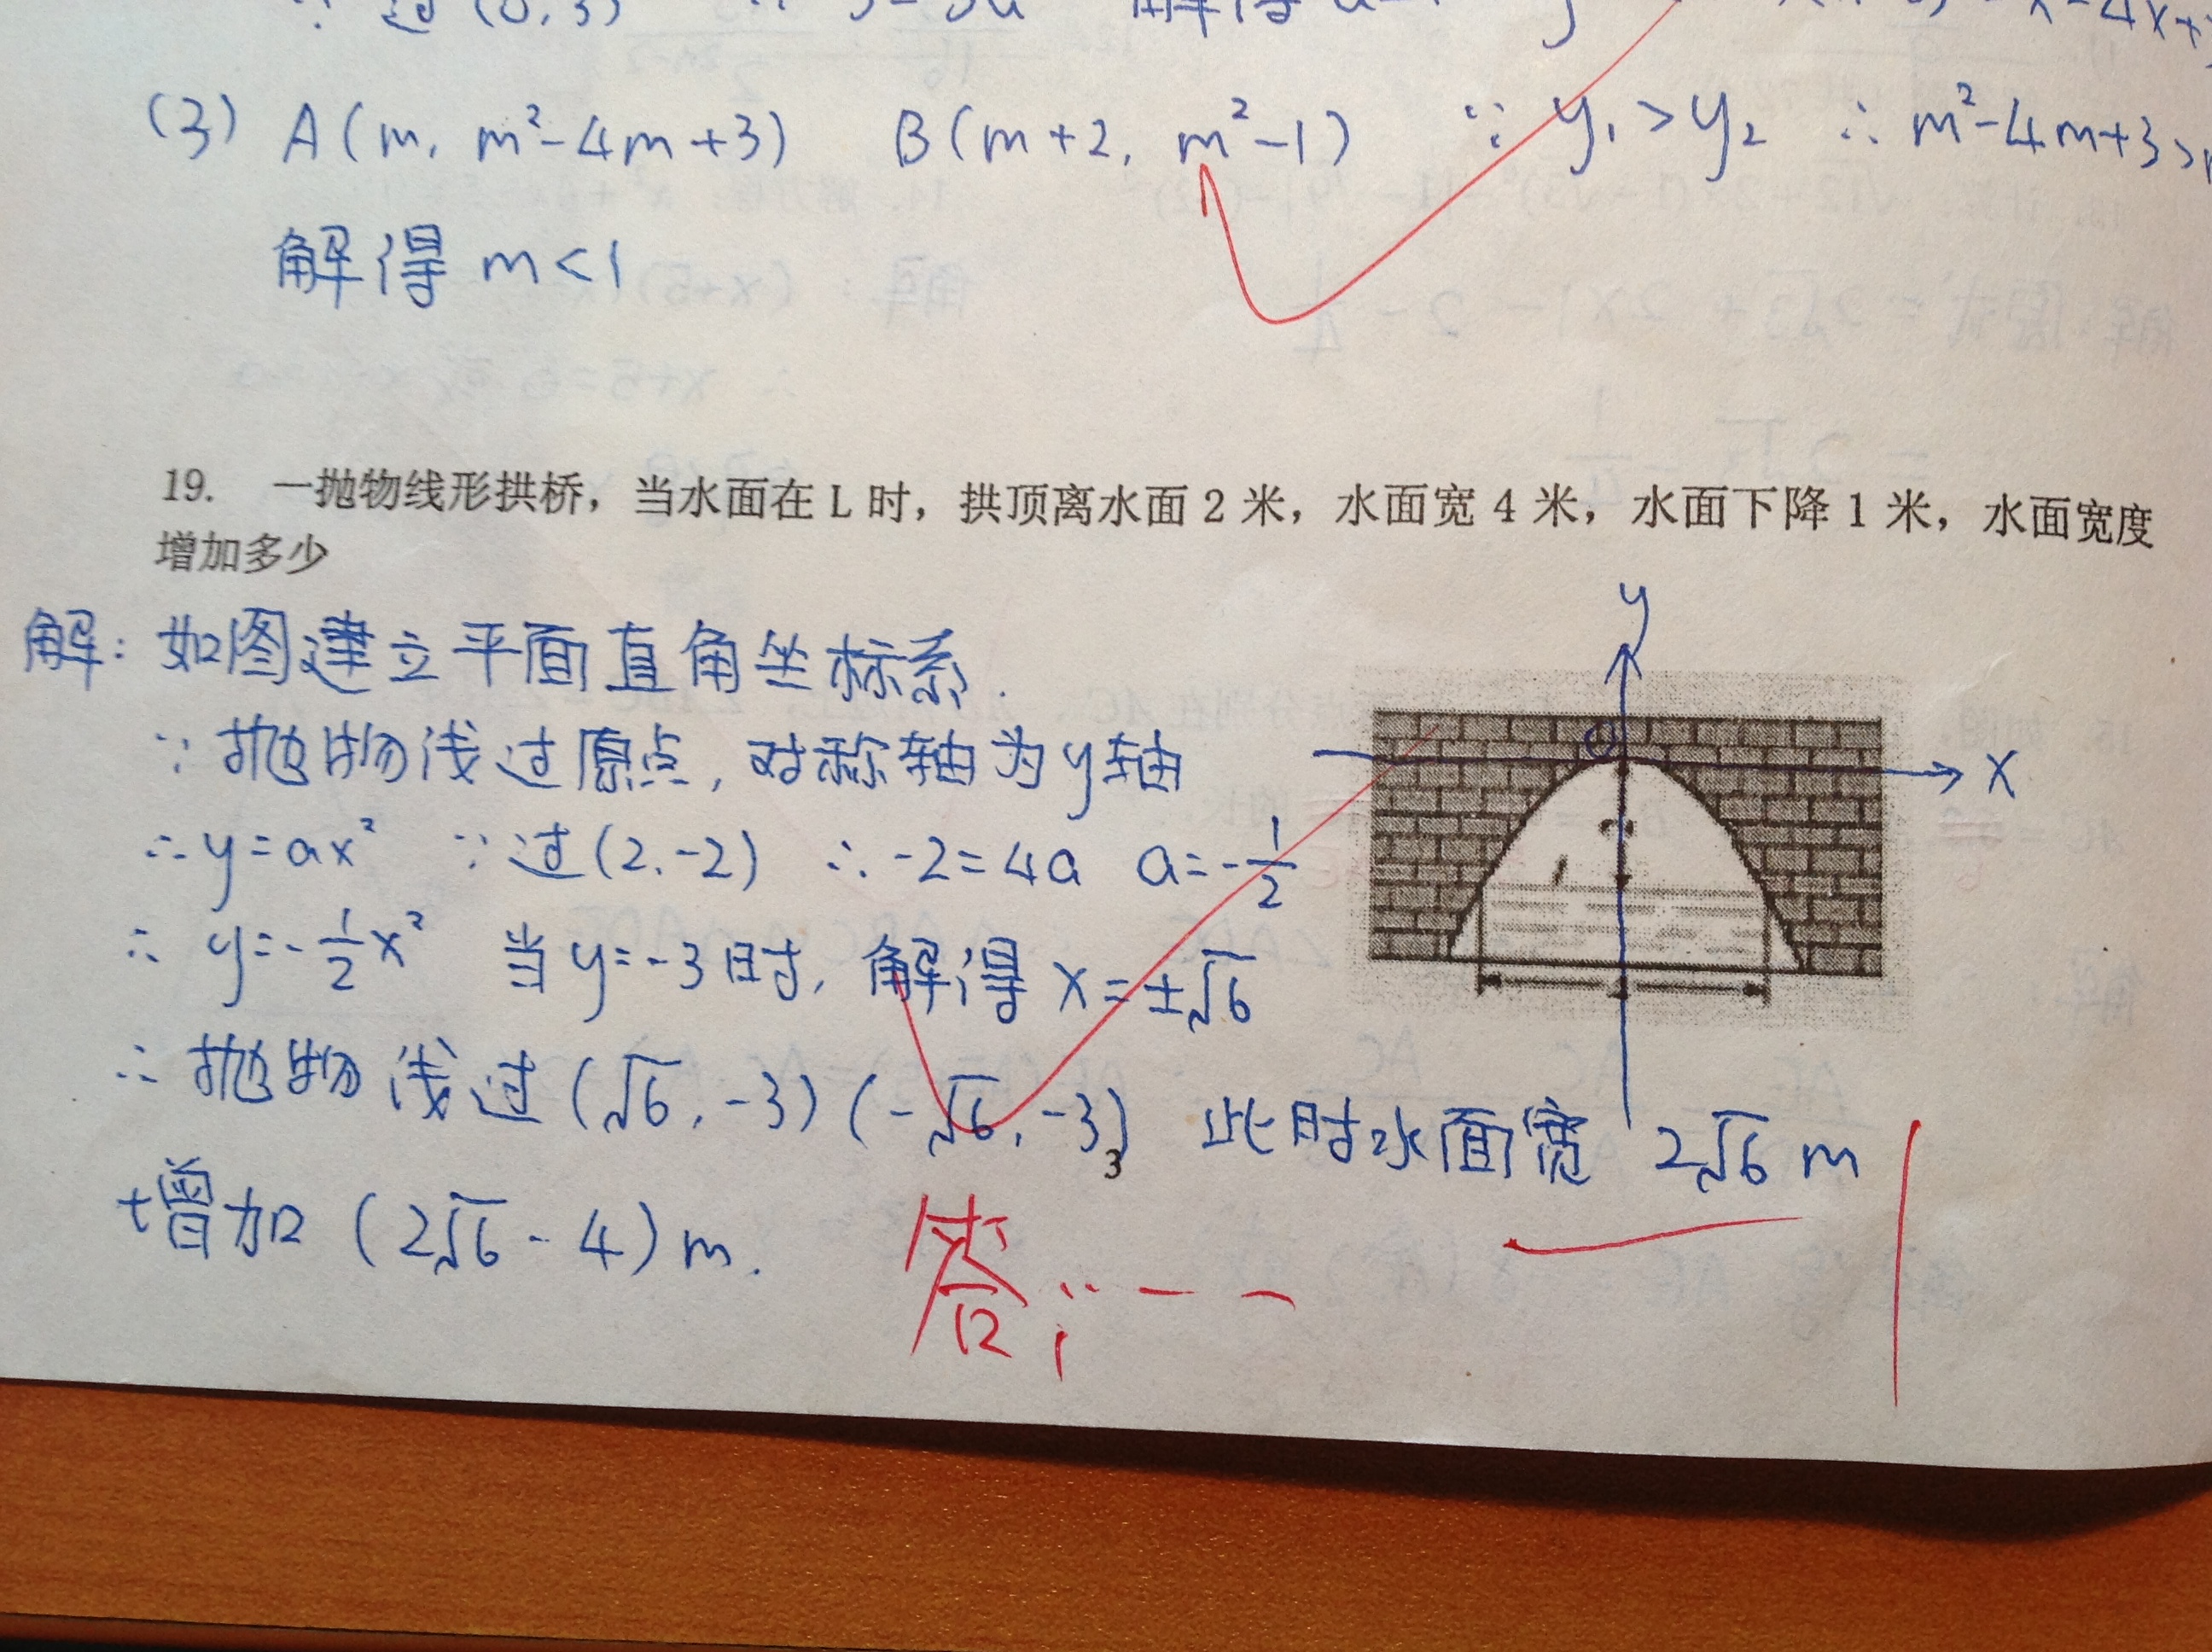 ∵ 过(0,3)
(3) A(m, m²-4m+3) B(m+2, m²-1) ∵ y₁>y₂ ∴ m²-4m+3>
解得 m<1
19. 一抛物线形拱桥，当水面在 L 时，拱顶离水面 2 米，水面宽 4 米，水面下降 1 米，水面宽度
增加多少
解：如图建立平面直角坐标系.
∵ 抛物线过原点，对称轴为y轴
∴ y=ax² ∵ 过(2,-2) ∴ -2=4a a=-1/2
∴ y=-1/2x² 当y=-3时，解得 x=±√6
∴ 抛物线过(√6,-3)(-√6,-3) 此时水面宽 2√6 m
增加 (2√6-4)m.
y
O
x
3
答：